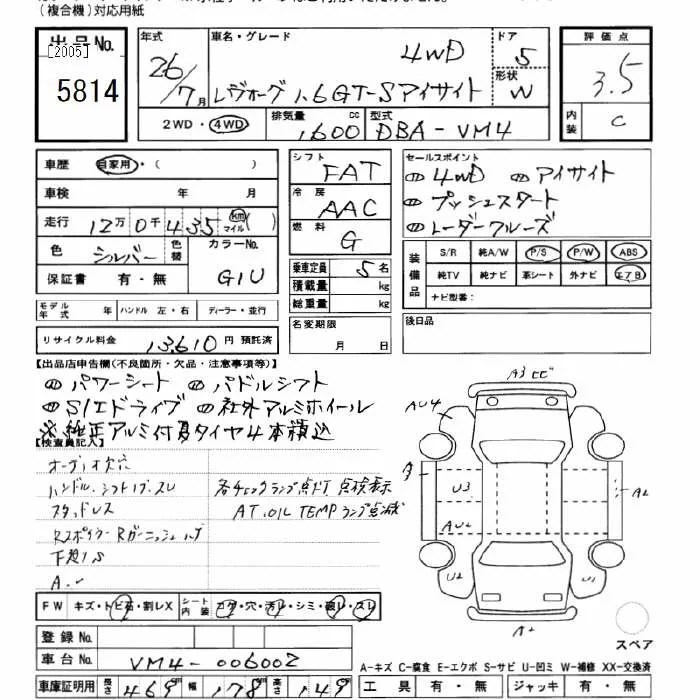 (複合機)対応用紙
出品No.
[2005]
5814
年式
26/7月
車名・グレード
4WD
レヴォーグ 1.6GT-Sアイサイト
ドア
5
形状
W
評価点
3.5
内装
C
2WD・4WD
排気量
1,600 cc
型式
DBA-VM4
車歴 自家用・( )
車検 年 月
走行 12万0千435 km マイル ( )
色 シルバー 色替 カラーNo. G1U
保証書 有・無
モデル年式 ハンドル 左・右 ディーラー・並行
リサイクル料金 13,610 円 預託済
シフト FAT
冷房 AAC
燃料 G
乗車定員 5名
積載量 kg
総重量 kg
名変期限
月 日
セールスポイント
4WD アイサイト
プッシュスタート
レーダークルーズ
装備品
S/R 純A/W P/S P/W ABS
純TV 純ナビ 革シート 外ナビ エアB
ナビ型番:
後日品
【出品店申告欄(不良箇所・欠品・注意事項等)】
パワーシート パドルシフト
SIエドライブ 社外アルミホイール
※純正アルミ付夏タイヤ4本積込
【検査員記入】
オーディオ欠品
ハンドル、シフトノブ、スレ
スタッドレス
各チェックランプ点灯 点検表示
AT.OIL TEMPランプ点滅
RスポイラーRガーニッシュ
下廻りS
A3
AU4
U3
AU2
U2
U1
A2
A2
FW キズ・トビ石・割レX
シート内装 コゲ・穴・汚レ・シミ・破レ・スレ
登録No.
車台No. VM4-006002
車庫証明用 長さ 469 幅 178 高さ 149
スペア
A-キズ C-腐食 E-エクボ S-サビ U-凹ミ W-補修 XX-交換済
工具 有・無 ジャッキ 有・無